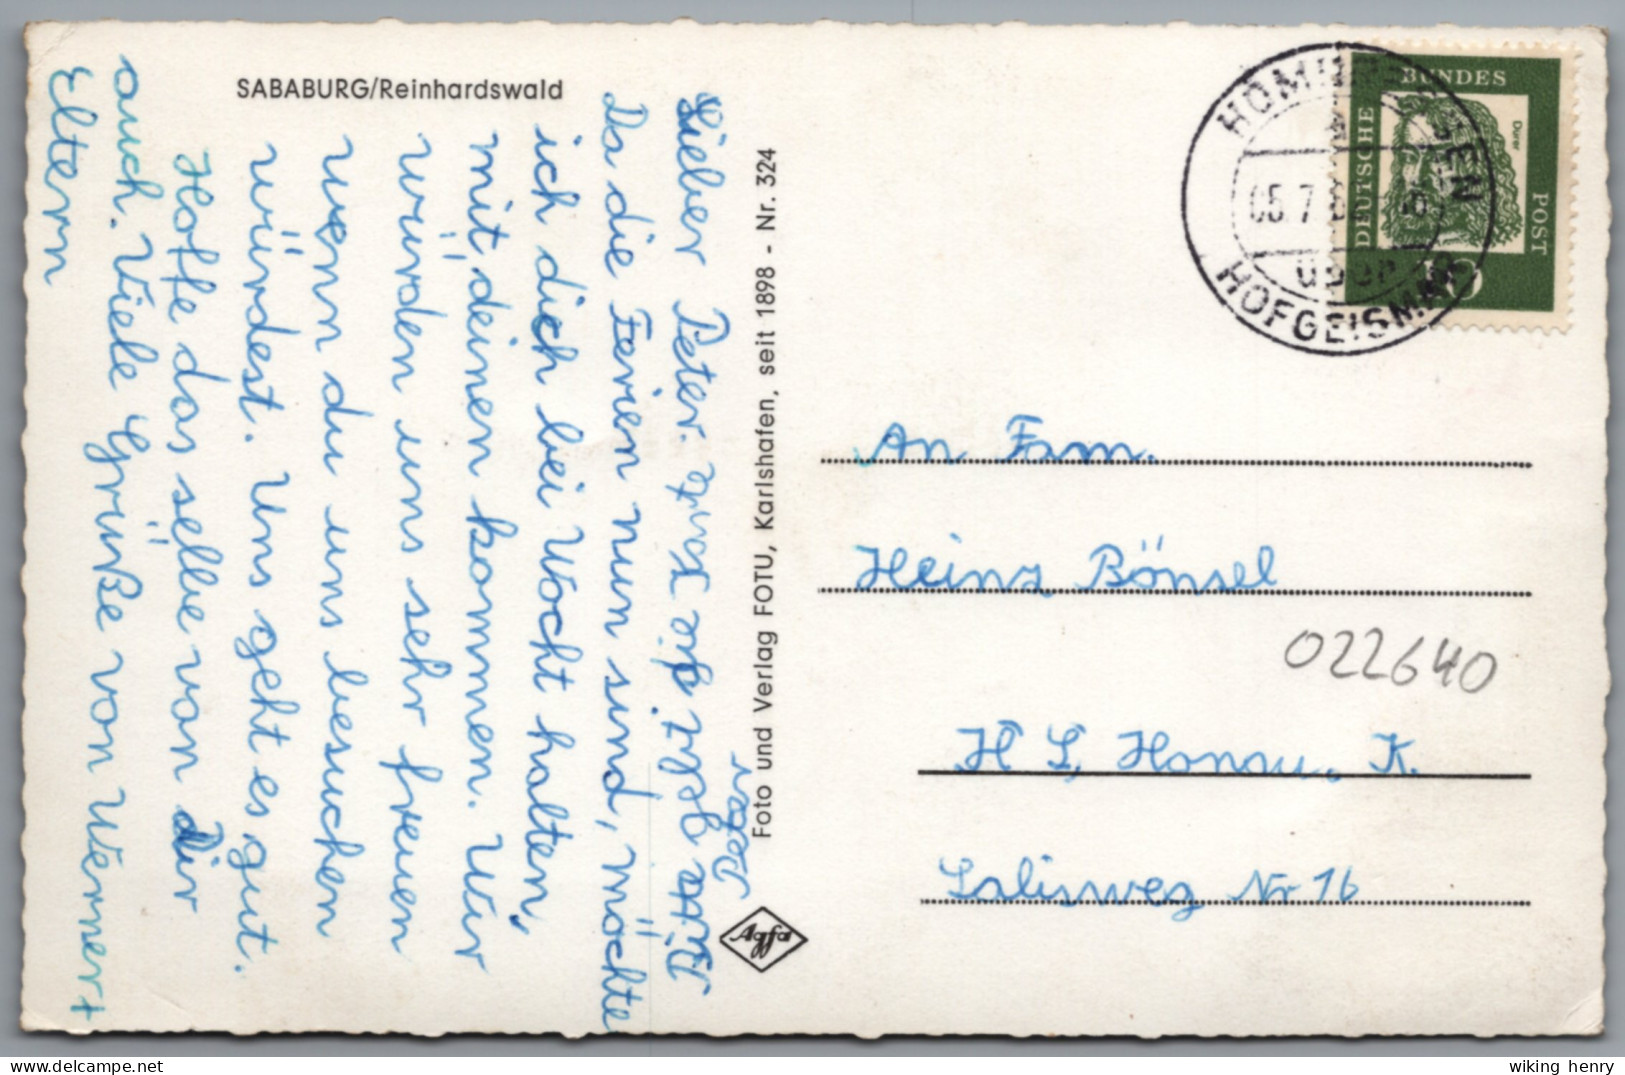 SABABURG/Reinhardswald
Lieber Peter.
Da die Ferien nun sind, möchte
ich dich bei Wocht halten,
mit deinen kommen. Wir
würden uns sehr freuen
wenn du uns besuchen
würdest. Uns geht es gut.
Hoffe das selbe von dir
auch. Viele Grüße von Werner +
Eltern
Foto und Verlag FOTU, Karlshafen, seit 1898 - Nr. 324
Agfa
HOFGEISMAR
05.7
DEUTSCHE BUNDES POST
Dürer
10
An Fam.
Heinz Bönsel
022640
H L, Hanau. K.
Salisweg Nr 16
wiking henry